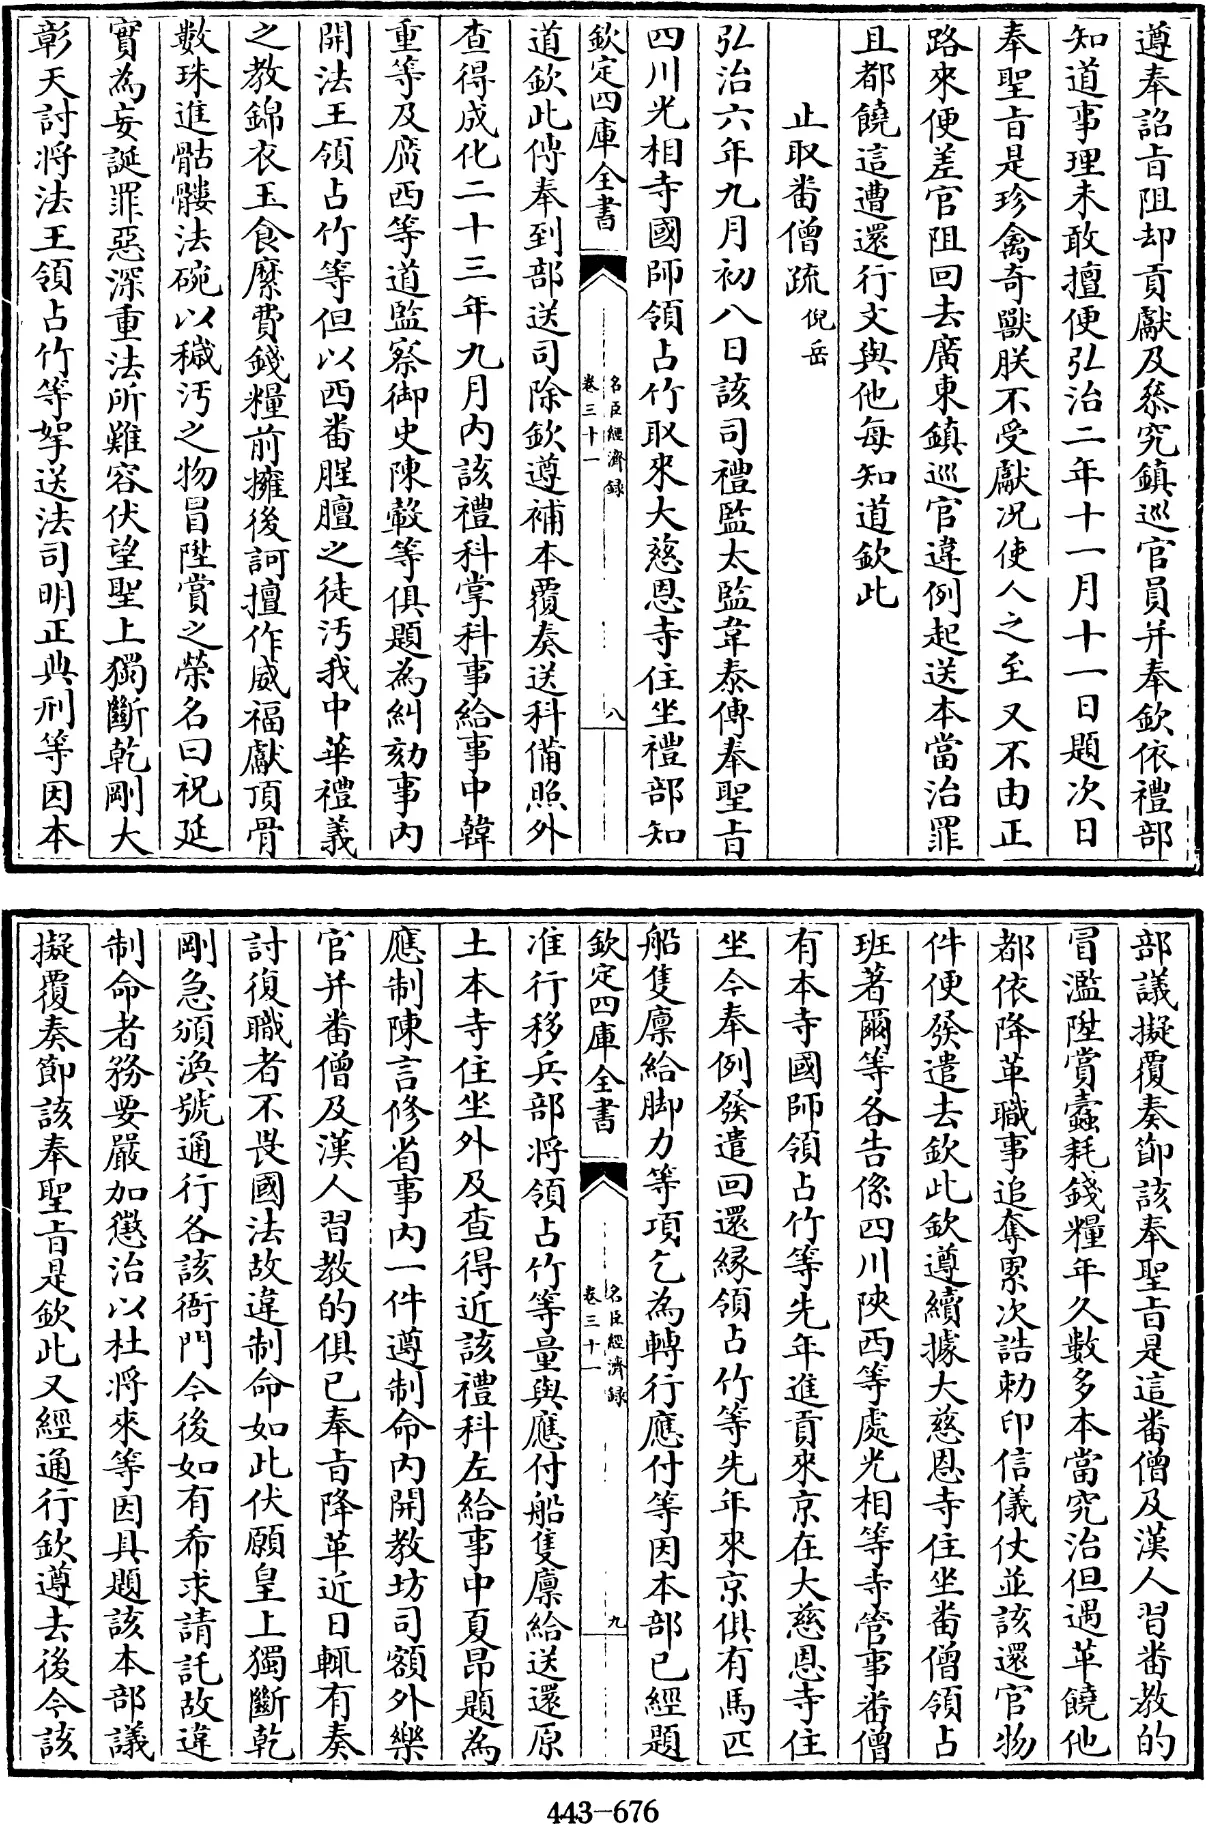 遵奉詔旨阻却貢獻及叅究鎮巡官員并奉欽依禮部
知道事理未敢擅便弘治二年十一月十一日題次日
奉聖旨是珍禽奇獸朕不受獻况使人之至又不由正
路來便差官阻回去廣東鎮巡官違例起送本當治罪
且都饒這遭還行文與他每知道欽此
止取番僧疏 倪岳
弘治六年九月初八日該司禮監太監韋泰傳奉聖旨
四川光相寺國師領占竹取來大慈恩寺住坐禮部知
欽定四庫全書
名臣經濟録
卷三十一
八
道欽此傳奉到部送司除欽遵補本覆奏送科備照外
查得成化二十三年九月内該禮科掌科事給事中韓
重等及廣西等道監察御史陳㲄等俱題為糾劾事内
開法王領占竹等但以西番腥膻之徒汚我中華禮義
之教錦衣玉食縻費錢糧前擁後訶擅作威福獻頂骨
數珠進骷髏法碗以穢汚之物冒陞賞之榮名曰祝延
實為妄誕罪惡深重法所難容伏望聖上獨斷乾剛大
彰天討將法王領占竹等拏送法司明正典刑等因本
部議擬覆奏節該奉聖旨是這番僧及漢人習番教的
冒濫陞賞蠧耗錢糧年久數多本當究治但遇革饒他
都依降革職事追奪累次誥勅印信儀仗並該還官物
件便發遣去欽此欽遵續據大慈恩寺住坐番僧領占
班著爾等各告係四川陜西等處光相等寺管事番僧
有本寺國師領占竹等先年進貢來京在大慈恩寺住
坐今奉例發遣回還縁領占竹等先年來京俱有馬匹
船隻廪給脚力等項乞為轉行應付等因本部已經題
欽定四庫全書
名臣經濟録
卷三十一
九
准行移兵部將領占竹等量與應付船隻廪給送還原
土本寺住坐外及查得近該禮科左給事中夏昂題為
應制陳言修省事内一件遵制命内開教坊司額外樂
官并番僧及漢人習教的俱已奉旨降革近日輒有奏
討復職者不畏國法故違制命如此伏願皇上獨斷乾
剛急頒渙號通行各該衙門今後如有希求請託故違
制命者務要嚴加懲治以杜將來等因具題該本部議
擬覆奏節該奉聖旨是欽此又經通行欽遵去後今該
443-676